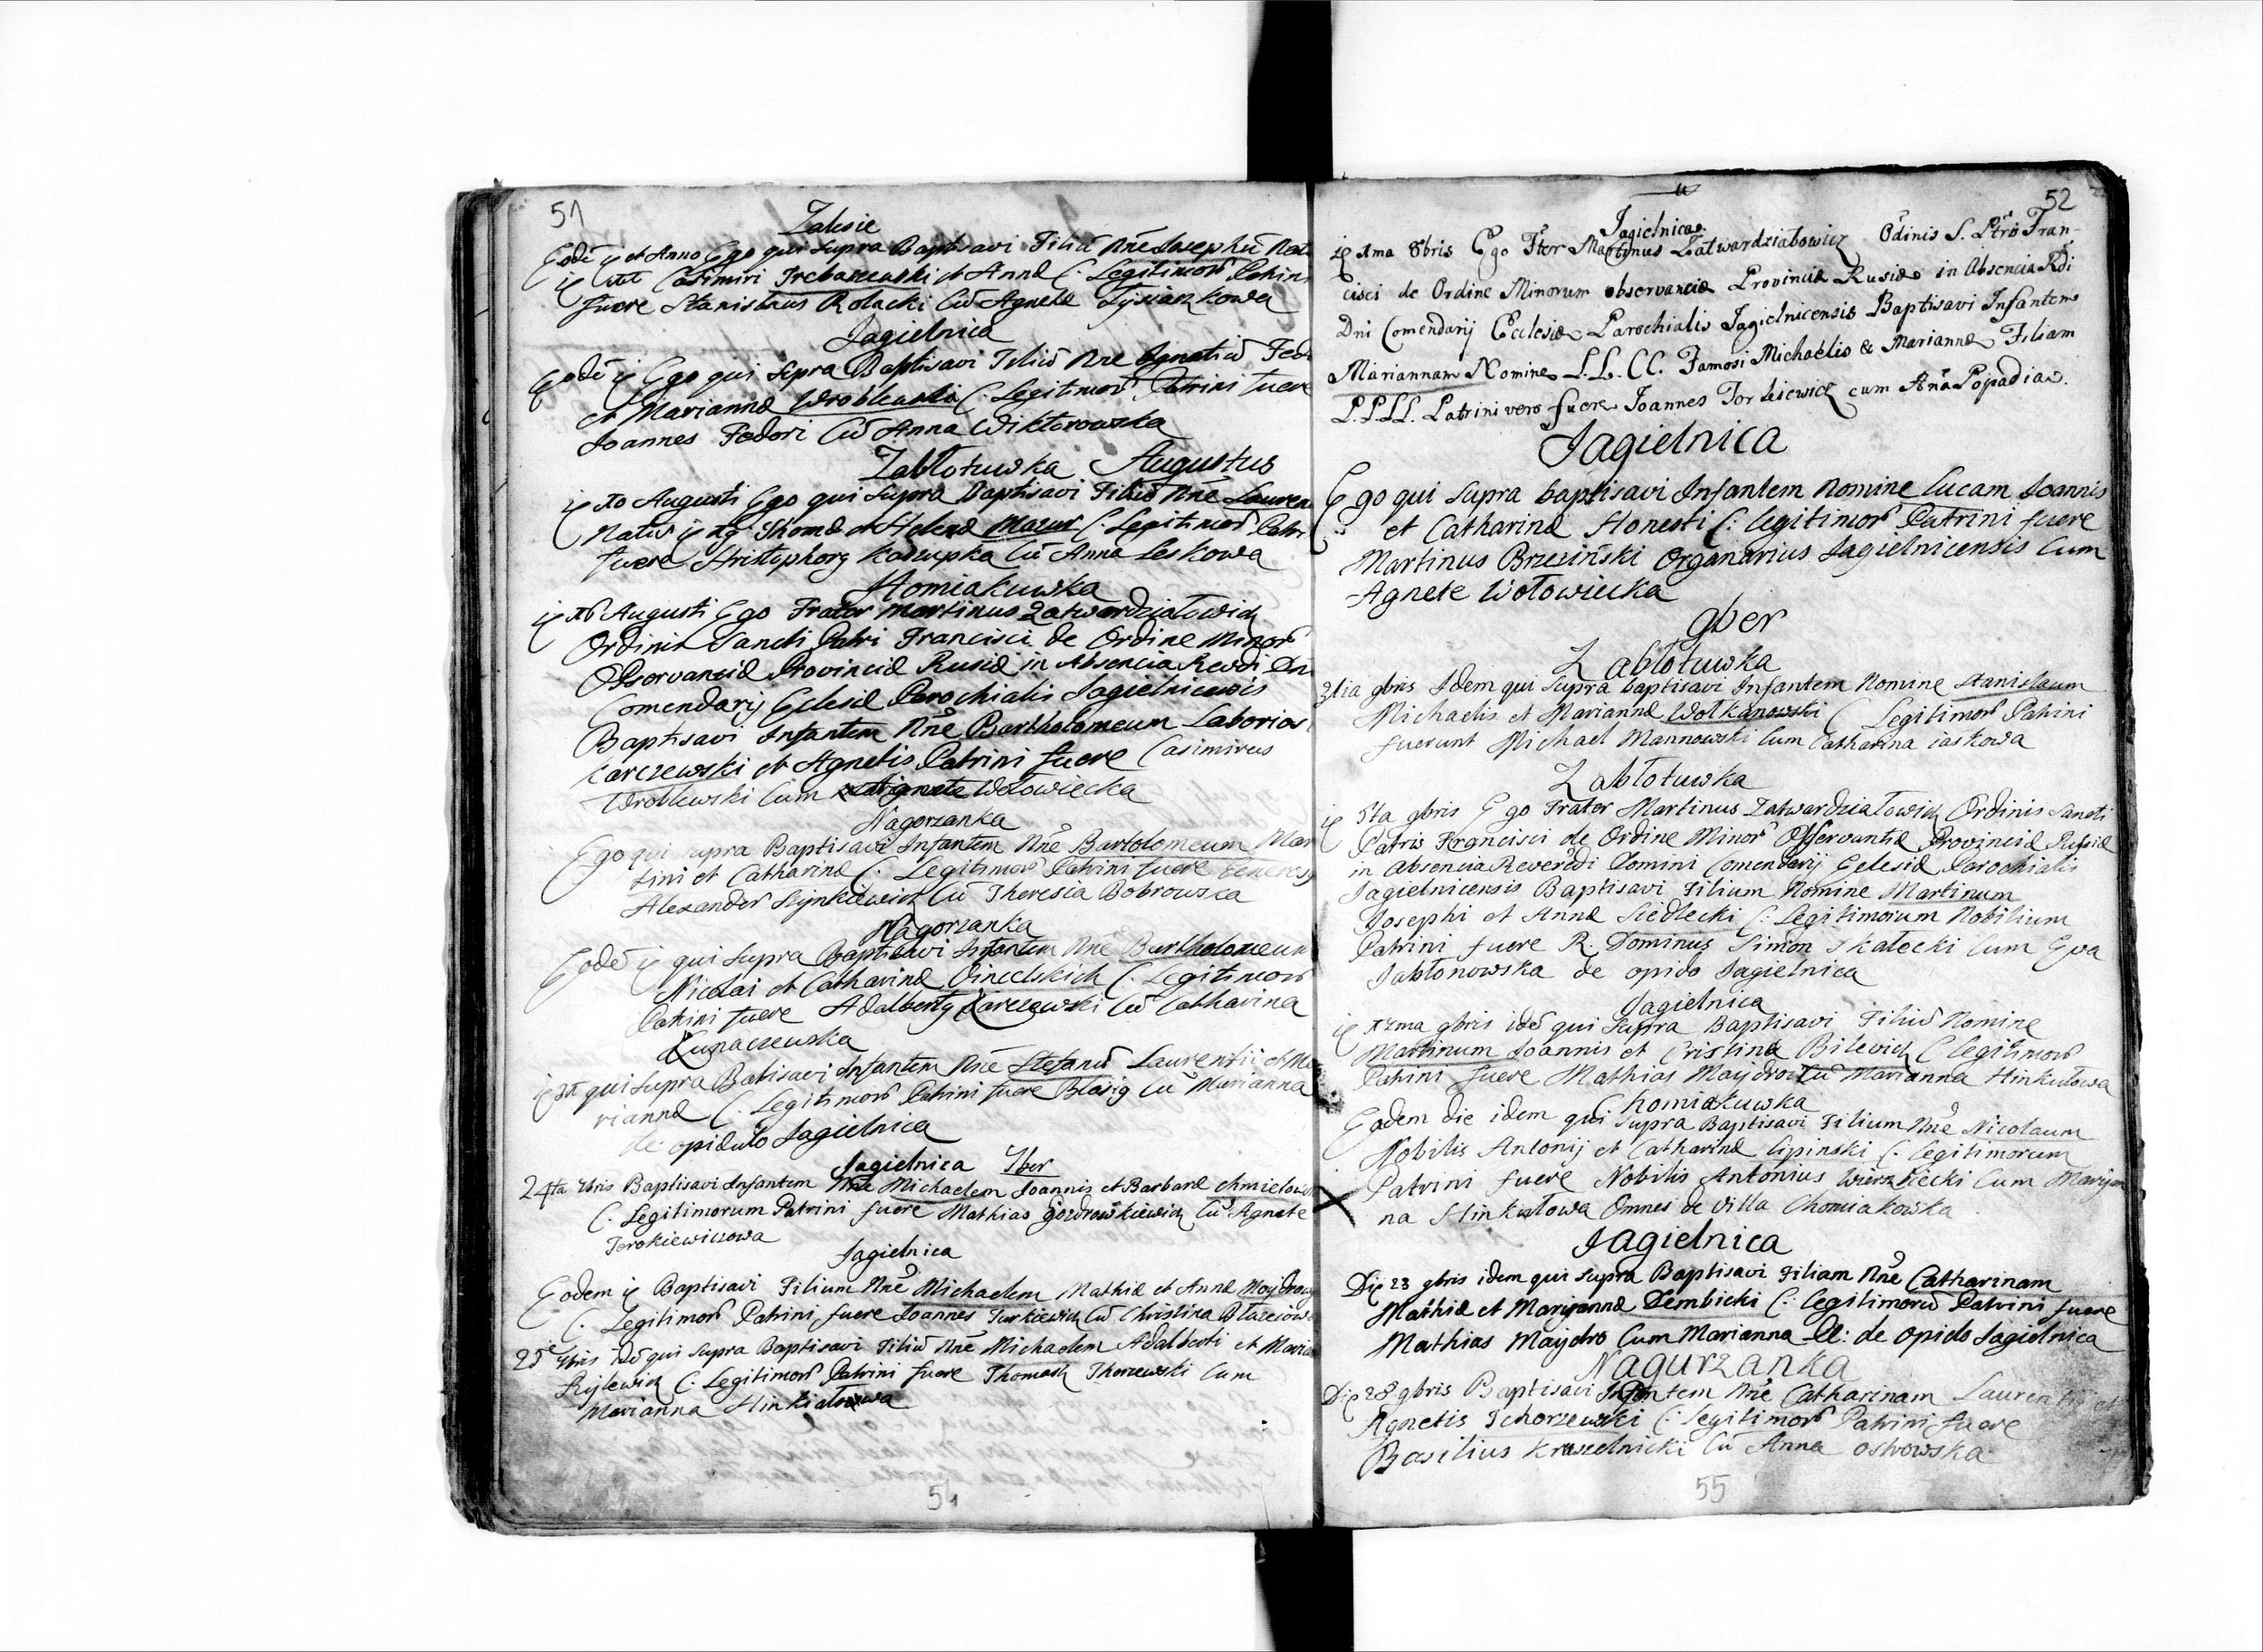 51
Zalesie
Eodē et Anno Ego qui supra Baptisavi Filiū Nne Josephū
Casimiri Trebaczewski et Annæ C. Legitimor Patrini
fuere Stanislaus Rolacki Cū Agnete Tysiaszkowa
Jagielnica
Eodē Ego qui supra Baptisavi Filiū Nne Ignatiū Fed
et Mariannæ Wroblewski C. Legitimor Patrini fuere
Joannes Fedori Cū Anna Wiktorowska
Zabłotuwka Augustus
Augusti Ego qui supra Baptisavi Filiū Nne Lauren
Natus Thomæ et Helenæ Mazur C. Legitimor Patr
fuere Hristophorg Kaszupka Cū Anna Leskowa
Homiakuwka
Augusti Ego Frater Martinus Zatwardziałowicz
Ordinis Sancti Patri Francisci de Ordine Minor
Observanciæ Provinciæ Rusiæ in Absencia Revdi Dni
Comendarij Eclesiæ Parochialis Jagielnicensis
Baptisavi Infantem Nne Bartholomeum Laborios
Karczewski et Agnetis Patrini fuere Casimirus
Wroblewski Cum Agnete Wołowiecka
Nagorzanka
Ego qui supra Baptisavi Infantem Nne Bartolomeum Mar
tini et Catharinæ C. Legitimor Patrini fuere
Alexander Cū Theresia Bobrowska
Nagorzanka
Eodē qui supra Baptisavi Infantem Nne Bartholomeum
Nicolai et Catharinæ C. Legitimor
Patrini fuere Adalbertg Karczewski Cū Catharina
Łunaczewska
qui supra Batisavi Infantem Nne Stefanū Laurentii et Ma
riannæ C. Legitimor Patrini fuere Blasig Cū Marianna
de opidulo Jagielnica
Jagielnica 7ber
24ta 7bris Baptisavi Infantem Nne Michaelem Joannis et Barbaræ Chmielow
C. Legitimorum Patrini fuere Mathias Cū Agnete
Torokiewiczowa
Jagielnica
Eodem Baptisavi Filium Nne Michaelem Mathiæ et Annæ Moydrow
C. Legitimor Patrini fuere Joannes Turkiewicz Cū Christina
25 7bris idē qui supra Baptisavi Filiū Nne Michaelem Adalberti et Marian
C. Legitimor Patrini fuere Thomas Thorzewski Cum
Marianna Hinkiałowa
54
52
Jagielnica
xma 8bris Ego Fter Martynus Zatwardziałowicz Odinis S. Ptris Fran-
cisci de Ordine Minorum observanciæ Provinciæ Rusiæ in Absencia Rdi
Dni Comendarij Ecclesiæ Parochialis Jagielnicensis Baptisavi Infantem
Mariannam Nomine L.L. CC. Famosi Michaelis & Mariannæ Filiam
P.P.LL. Patrini vero fuere Joannes Torkiewicz cum Ana Popadia.
Jagielnica
Ego qui supra baptisavi Infantem Nomine Lucam Joannis
et Catharinæ Honesti C: legitimor Patrini fuere
Martinus Brzeziński Organarius Jagielnicensis Cum
Agnete Wołowiecka
9ber
Zabłotuwka
31ia 9bris Idem qui supra baptisavi Infantem Nomine Stanislaum
Michaelis et Mariannæ Wołkanowski C Legitimor Patrini
fuerunt Michael Mannowski Cum Catharina iaskowa
Zabłotuwka
5ta 9bris Ego Frater Martinus Zatwardziałowicz Ordinis Sancti
Patris Francisci de Ordine Minor Observantiæ Provinciæ Rusiæ
in absencia Reverēdi Domini Comendarij Eclesiæ Parochialis
Jagielnicensis Baptisavi Filium Nomine Martinum
Josephi et Annæ Siedlecki C: Legitimorum Nobilium
Patrini fuere R. Dominus Simon Skałecki Cum Eva
Jabłonowska de opido Jagielnica
Jagielnica
9bris idē qui supra Baptisavi Filiū Nomine
Martinum Joannis et Cristinæ Bilevicz C legitimor
Patrini fuere Mathias Maydro Cū Marianna Hinkułowa
Chomiakuwka
Eodem die idem qui supra Baptisavi Filium Nne Nicolaum
Nobilis Antonij et Catharinæ Lipinski C. legitimorum
Patrini fuere Nobilis Antonius Wierzbicki Cum Maryan
na Hinkułowa Omnes de villa Chomiakowka
Jagielnica
Die 23 9bris idem qui supra Baptisavi Filiam Nne Catharinam
Mathiæ et Maryannæ Dembicki C: legitimorū Patrini fuere
Mathias Maydro Cum Marianna LL: de opido Jagielnica
Nagurzanka
Die 28 9bris Baptisavi Infantem Nne Catharinam Laurentij et
Agnetis Tchorzewski C: legitimor Patrini fuere
Basilius Kruszelnicki Cū Anna Ostrowska
55